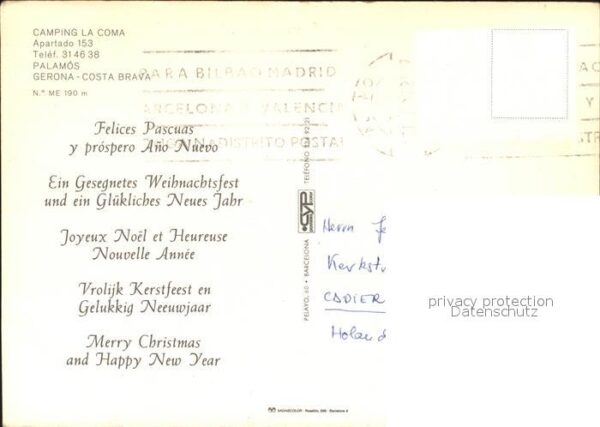 CAMPING LA COMA
Apartado 153
Teléf. 31 46 38
PALAMÓS
GERONA - COSTA BRAVA
N.º ME 190 m
PARA BILBAO MADRID
BARCELONA VALENCIA
DISTRITO POSTAL
Felices Pascuas
y próspero Año Nuevo
Ein Gesegnetes Weihnachtsfest
und ein Glükliches Neues Jahr
Joyeux Noël et Heureuse
Nouvelle Année
Vrolijk Kerstfeest en
Gelukkig Neeuwjaar
Merry Christmas
and Happy New Year
PELAYO, 60 • BARCELONA
CYP
TELÉFONO
Herrn Je
Kerkstr
CADIER
Holand
privacy protection
Datenschutz